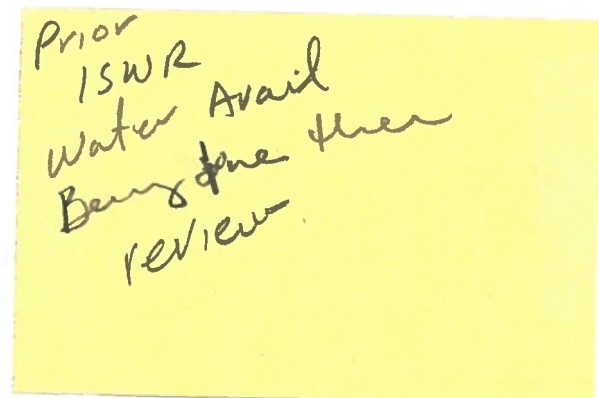 Prior
ISWR
Water Avail
Being done then
review